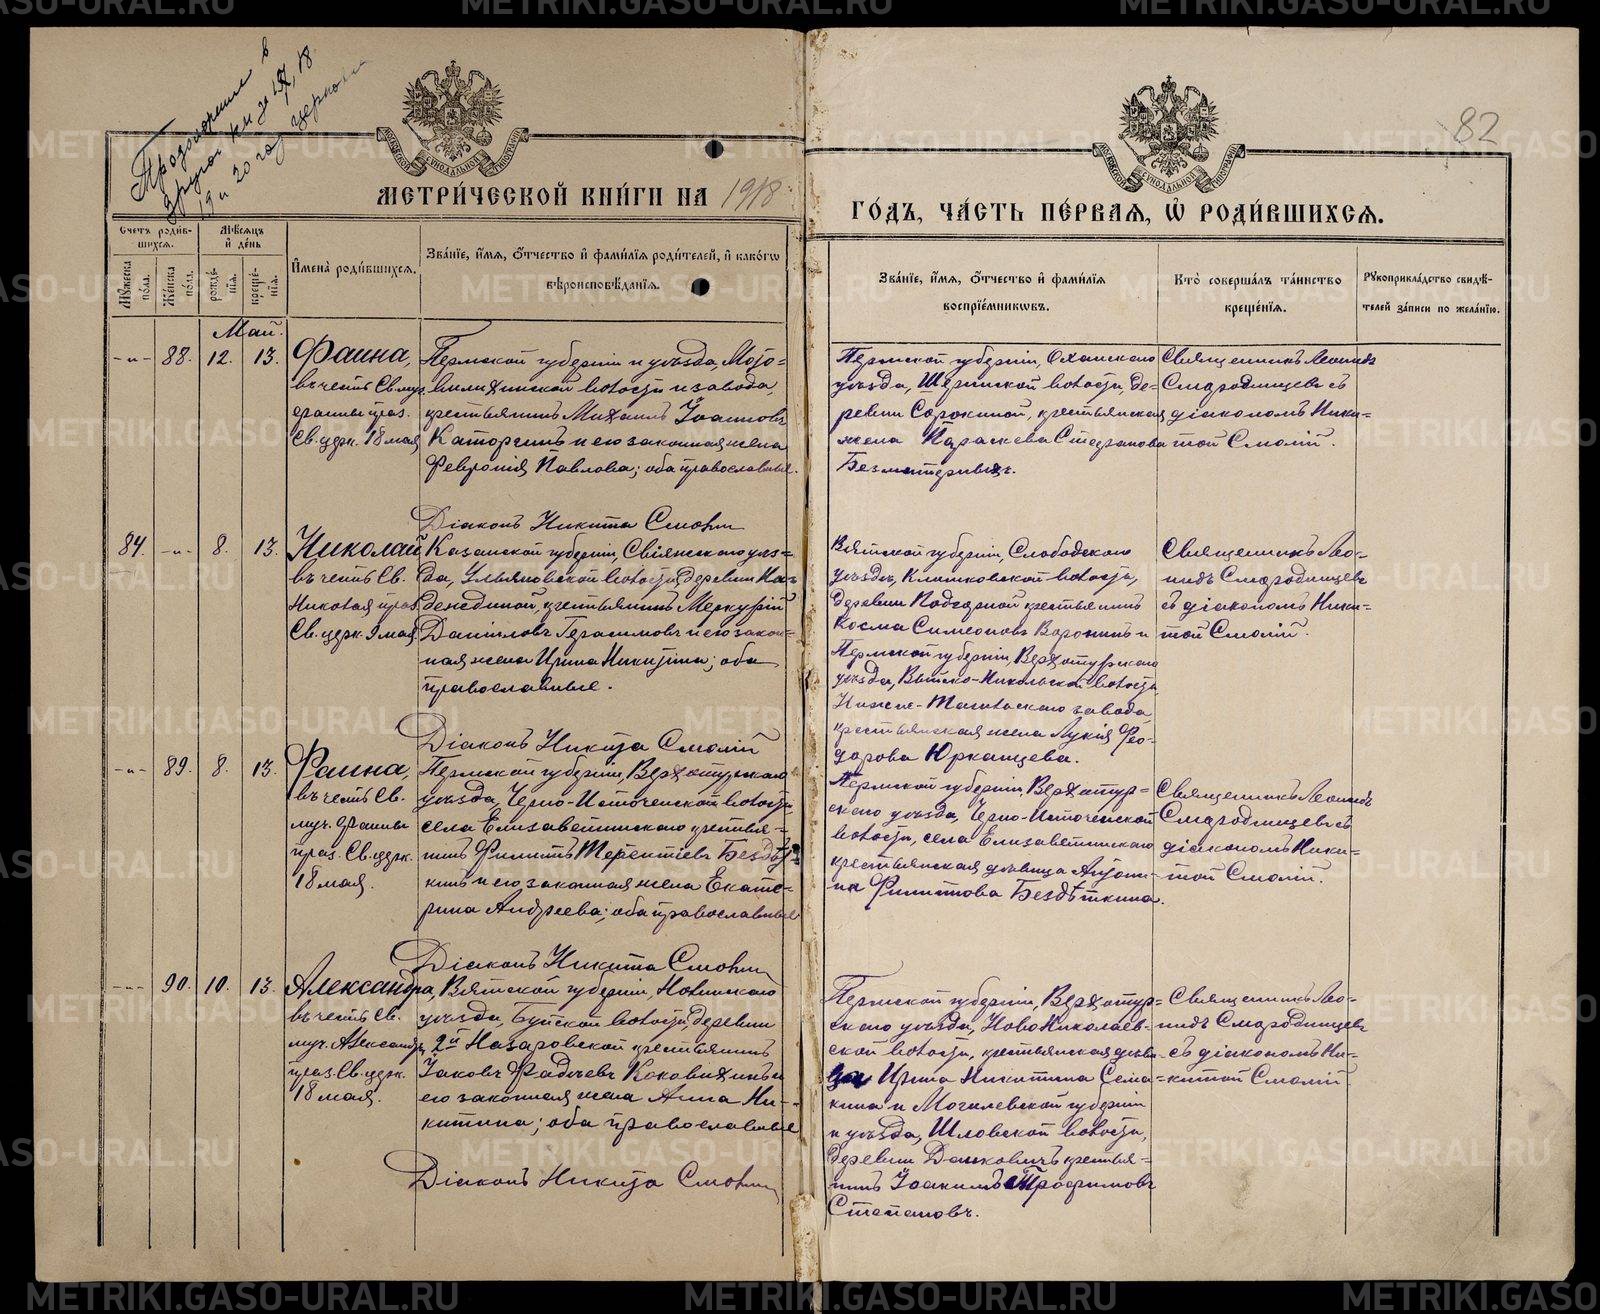 METRIKI.GASO-URAL.RU
Продолжение в
другой кн за 17, 18
19 и 20 год церкови
82
МОСКОВСКОЙ СУНОДАЛЬНОЙ ТИПОГРАФІИ
МОСКОВСКОЙ СУНОДАЛЬНОЙ ТИПОГРАФІИ
МЕТРИ́ЧЕСКОЙ КНИ́ГИ НА 1918
ГО́ДЪ, ЧА́СТЬ ПЕ́РВАЯ, Ѡ҆ РОДИ́ВШИХСЯ.
Счетъ роди́в-
шихся.
Мꙋ́жеска
по́ла.
Же́нска
по́ла.
Мѣ́сяцъ
и҆ де́нь
рожде́-
нїя.
креще́-
нїя.
И҆мена̀ роди́вшихся.
Зва́нїе, и҆́мя, ѻ҆́тчество и҆ фами́лїя роди́телей, и҆ како́гѡ
вѣроисповѣ́данїя.
Зва́нїе, и҆́мя, ѻ҆́тчество и҆ фами́лїя
воспрїе́мникѡвъ.
Кто̀ соверша́лъ та́инство
креще́нїя.
Рꙋкоприкла́дство свидѣ́-
телей за́писи по жела́нїю.
Май.
-„- 88. 12. 13.
Фаина,
въ честь Св. муч.
Фаины праз.
Св. церк. 18 мая
Пермской губерніи и уѣзда, Мото-
вилихинской волости и завода,
крестьянинъ Михаилъ Іоанновъ
Каторгинъ и его законная жена
Феврониія Павлова; оба православные.
Діаконъ Никита Смолий
Пермской губерніи, Оханскаго
уѣзда, Шерьинской волости, де-
ревни Сорокиной, крестьянская
жена Параскева Стефанова
Безматерныхъ.
Священникъ Леонидъ
Смородинцевъ съ
діакономъ Ники-
той Смолій.
84. -„- 8. 13.
Николай
въ честь Св.
Николая праз.
Св. церк. 9 мая
Казанской губерніи, Свіяжскаго уѣз-
да, Ульянковской волости, деревни
крестьянинъ Меркурій
Даниловъ Герасимовъ и его закон-
ная жена Ирина Никитина; оба
православные.
Діаконъ Никита Смолій
Вятской губерніи, Слободскаго
уѣзда, Климковской волости,
деревни Подгорной крестьянинъ
Косма Симеоновъ Воронинъ и
Пермской губерніи, Верхотурскаго
уѣзда, Выйско-Никольской волости
Нижне-Тагильскаго завода
крестьянская жена Лукія Фео-
дорова Юрканцева.
Священникъ Лео-
нидъ Смородинцевъ
съ діакономъ Ники-
той Смолій.
-„- 89. 8. 13.
Фаина,
въ честь Св.
муч. Фаины
праз. Св. церк.
18 мая.
Пермской губерніи, Верхотурскаго
уѣзда, Черно-Источенской волости,
села Елизаветинскаго крестья-
нинъ Филиппъ Терентіевъ Бездѣт-
кинъ и его законная жена Екате-
рина Андреева; оба православные
Діаконъ Никита Смолій
Пермской губерніи, Верхотур-
скаго уѣзда, Черно-Источенской
волости, села Елизаветинскаго
крестьянская дѣвица Антони-
на Филиппова Бездѣткина.
Священникъ Леонидъ
Смородинцевъ съ
діакономъ Ники-
той Смолій.
-„- 90. 10. 13.
Александра,
въ честь Св.
муч. Александры
праз. Св. церк.
18 мая.
Вятской губерніи, Нолинскаго
уѣзда, Буйской волости, деревни
2й Назаровской крестьянинъ
Іаковъ Фадѣевъ Коковихинъ и
его законная жена Анна Ни-
китина; оба православные
Діаконъ Никита Смолій
Пермской губерніи, Верхотур-
скаго уѣзда, Ново Николаев-
ской волости, крестьянская дѣви-
ца Ирина Никитина Сема-
кина и Могилевской губерніи
и уѣзда, Шкловской волости,
деревни Дашковичъ крестья-
нинъ Іоакимъ Трофимовъ
Степановъ.
Священникъ Лео-
нидъ Смородинцевъ
съ діакономъ Ни-
китой Смолій